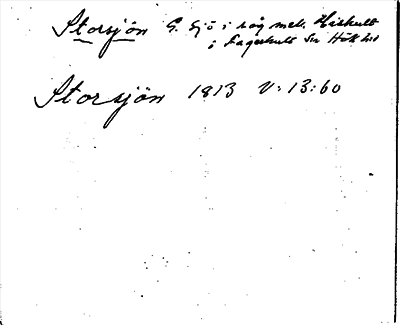 Storsjön G. Sjö i råg mel. Härhult
i Fagerhult Sn Hök hd
Storsjön 1813 V:13:60